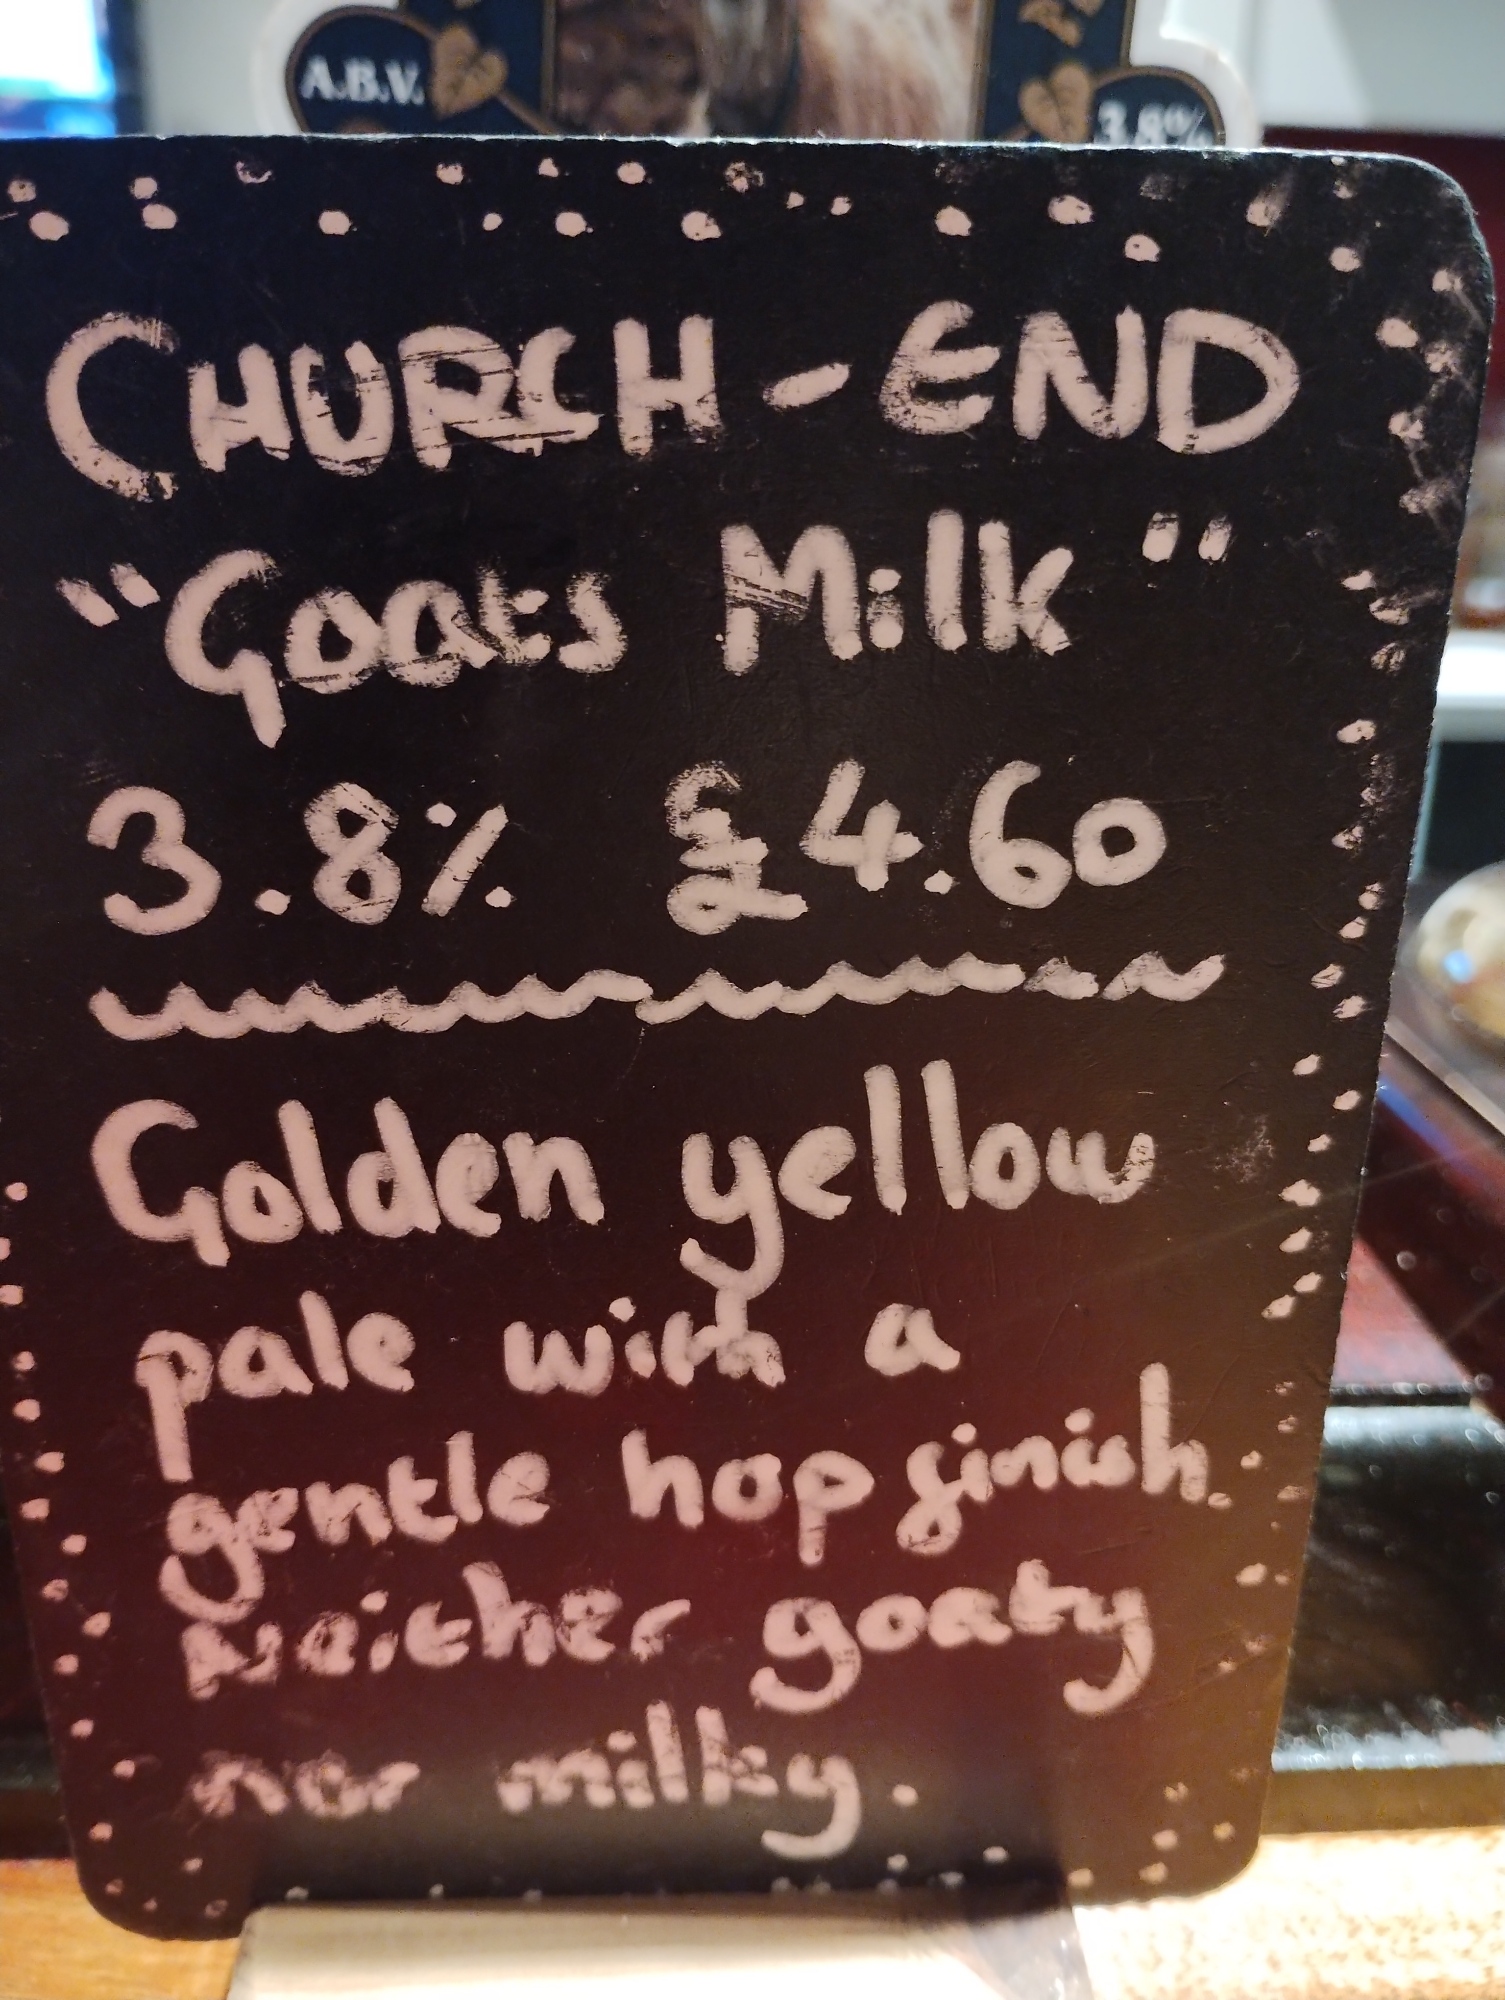 A.B.V. 3.8%
CHURCH - END
"Goats Milk"
3.8% £4.60
Golden yellow
pale with a
gentle hop finish.
Neither goaty
nor milky.